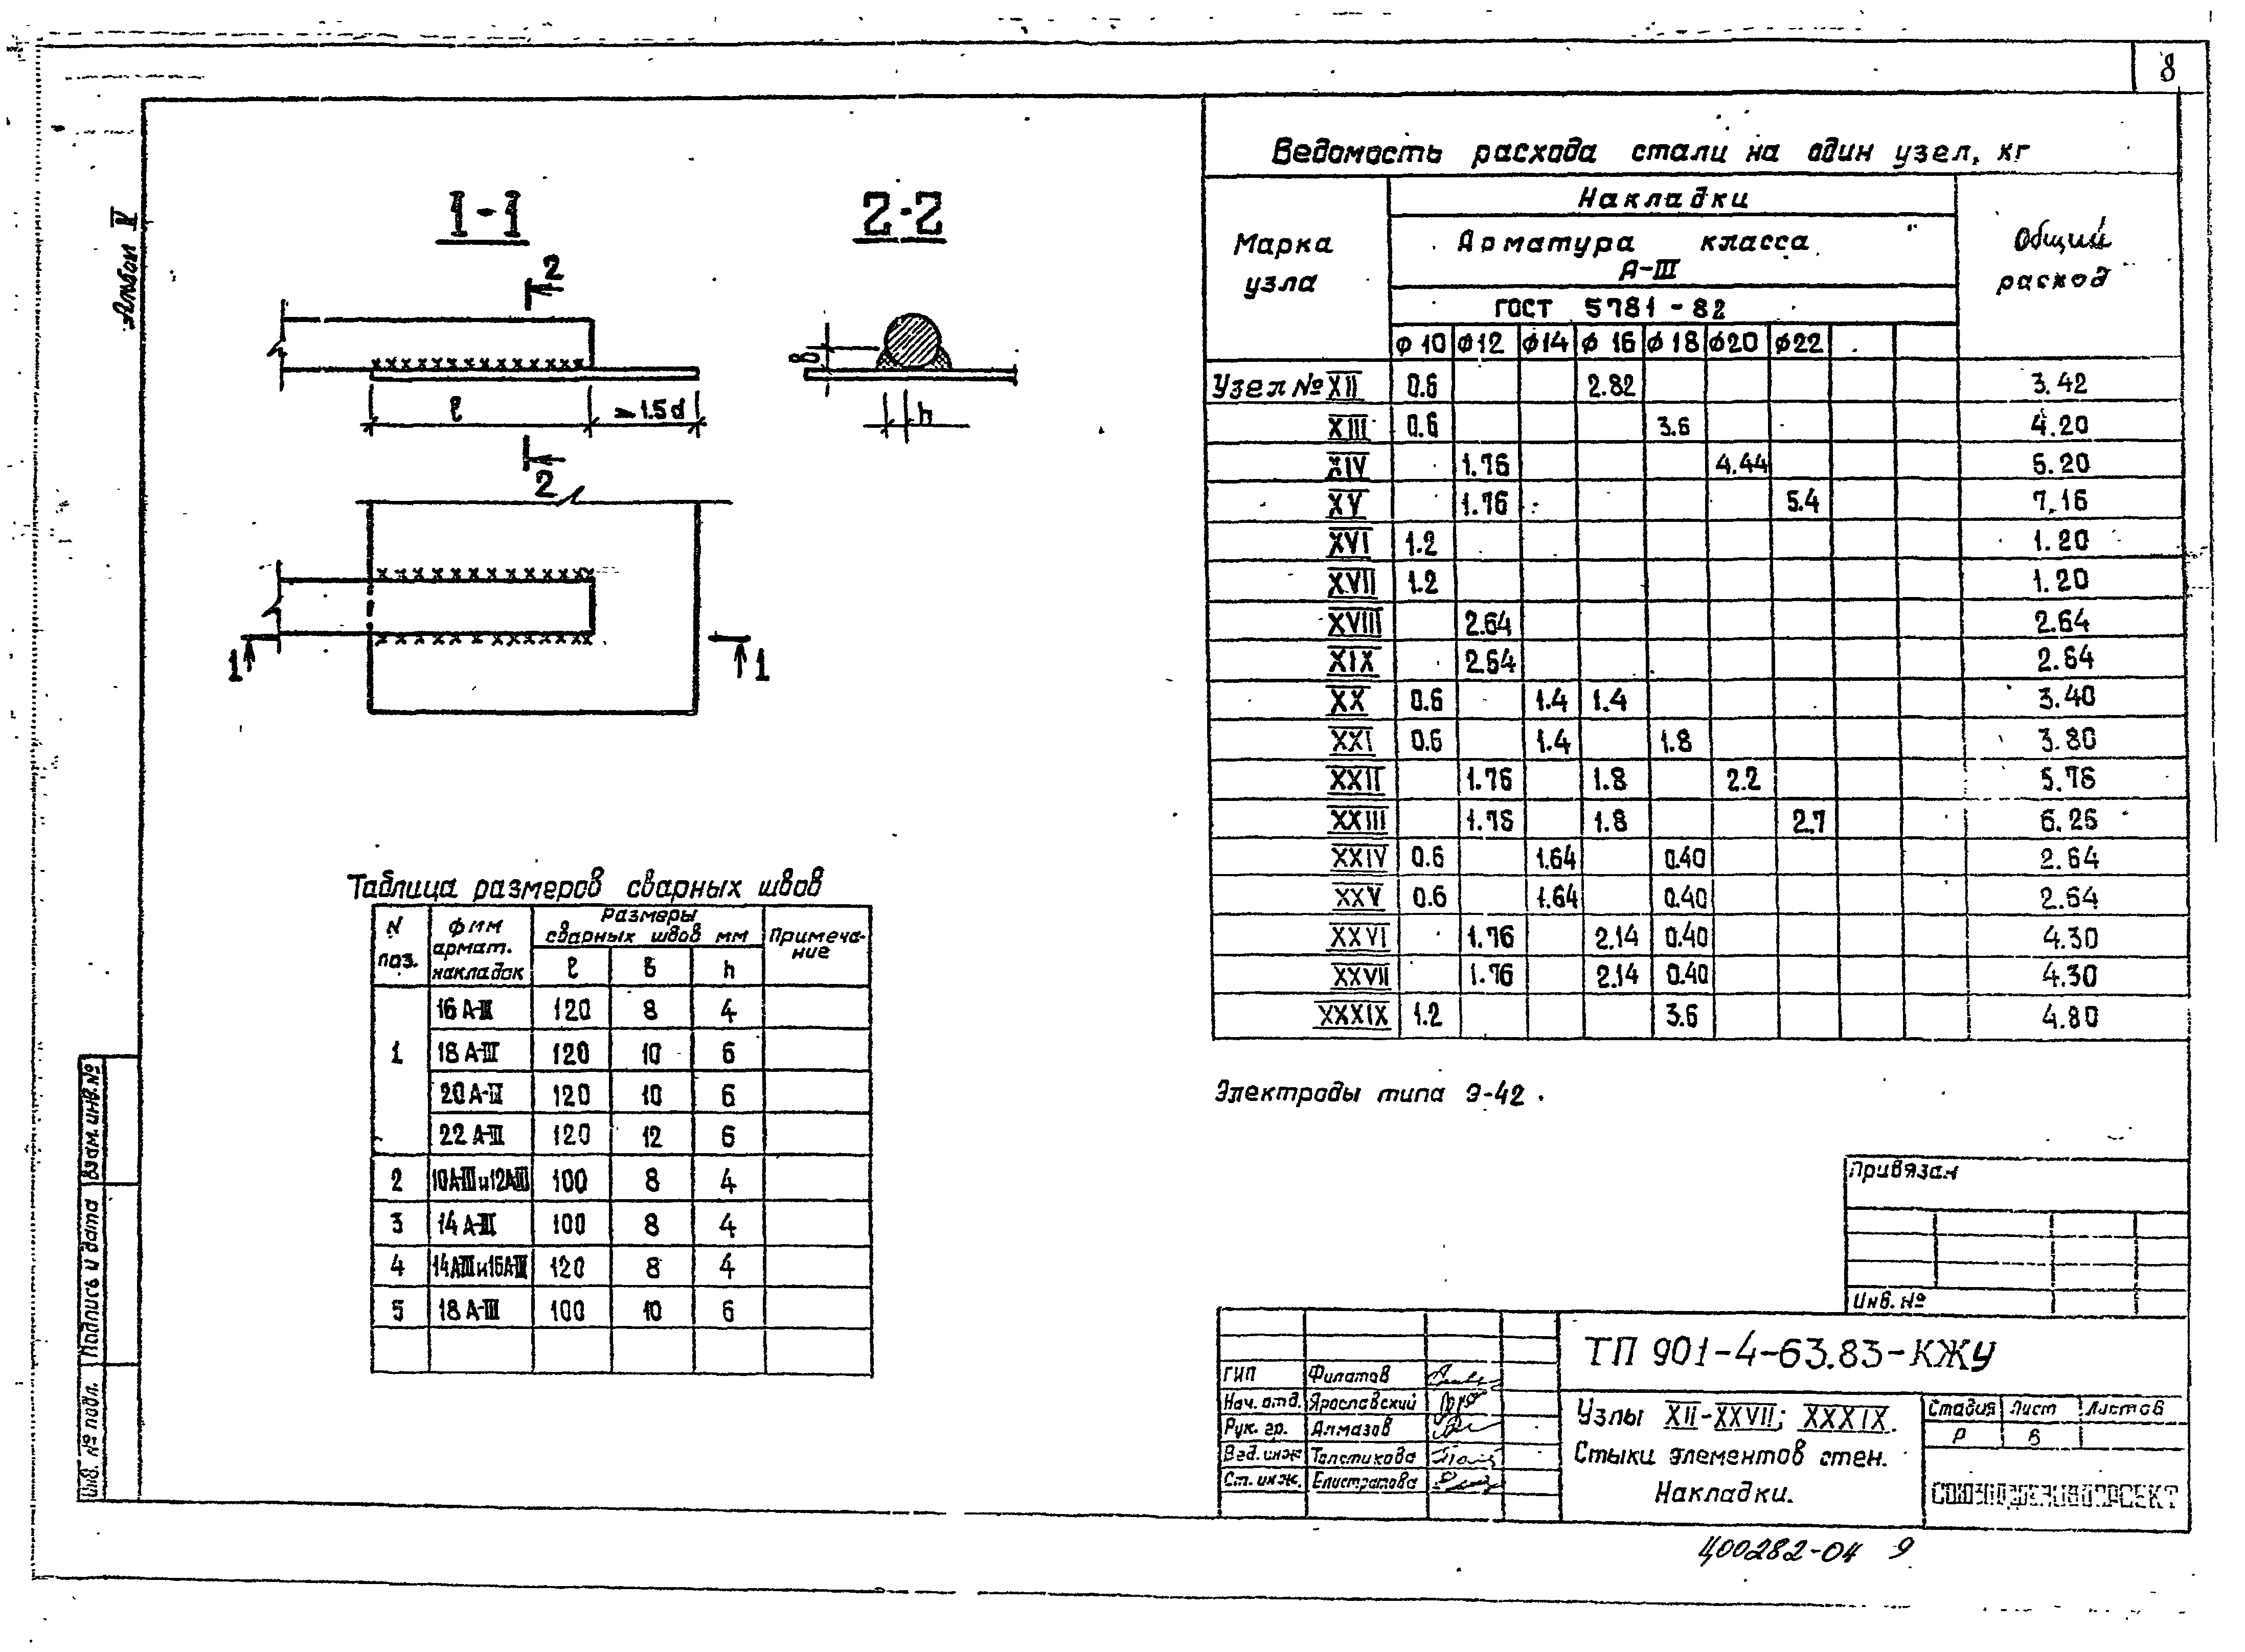 8
Альбом V
1-1
2-2
2
б
ℓ
≥1.5d
h
2
1
1
Таблица размеров сварных швов
N поз. | ф мм армат. накладок | Размеры сварных швов мм | Примечание
ℓ | б | h
1 | 16 А-III | 120 | 8 | 4
18 А-III | 120 | 10 | 6
20 А-III | 120 | 10 | 6
22 А-III | 120 | 12 | 6
2 | 10А-III и 12А-III | 100 | 8 | 4
3 | 14 А-III | 100 | 8 | 4
4 | 14А-III и 16А-III | 120 | 8 | 4
5 | 18 А-III | 100 | 10 | 6
Ведомость расхода стали на один узел, кг
Марка узла | Накладки | Общий расход
Арматура класса
А-III
ГОСТ 5781-82
ф 10 | ф12 | ф14 | ф 16 | ф 18 | ф20 | ф22
Узел № XII | 0.6 | 2.82 | 3.42
XIII | 0.6 | 3.6 | 4.20
XIV | 1.76 | 4.44 | 6.20
XV | 1.76 | 5.4 | 7.16
XVI | 1.2 | 1.20
XVII | 1.2 | 1.20
XVIII | 2.64 | 2.64
XIX | 2.64 | 2.64
XX | 0.6 | 1.4 | 1.4 | 3.40
XXI | 0.6 | 1.4 | 1.8 | 3.80
XXII | 1.76 | 1.8 | 2.2 | 5.76
XXIII | 1.76 | 1.8 | 2.7 | 6.26
XXIV | 0.6 | 1.64 | 0.40 | 2.64
XXV | 0.6 | 1.64 | 0.40 | 2.64
XXVI | 1.76 | 2.14 | 0.40 | 4.30
XXVII | 1.76 | 2.14 | 0.40 | 4.30
XXXIX | 1.2 | 3.6 | 4.80
Электроды типа Э-42.
Привязан
Инв. №
ГИП | Филатов
Нач. отд. | Ярославский
Рук. гр. | Алмазов
Вед. инж | Толстикова
Ст. инж. | Елистратова
ТП 901-4-63.83-КЖУ
Узлы XII-XXVII; XXXIX.
Стыки элементов стен.
Накладки.
Стадия | Лист | Листов
Р
СОЮЗВОДОКАНАЛПРОЕКТ
Ц00282-04 9
Взам. инв. №
Подпись и дата
Инв. № подл.